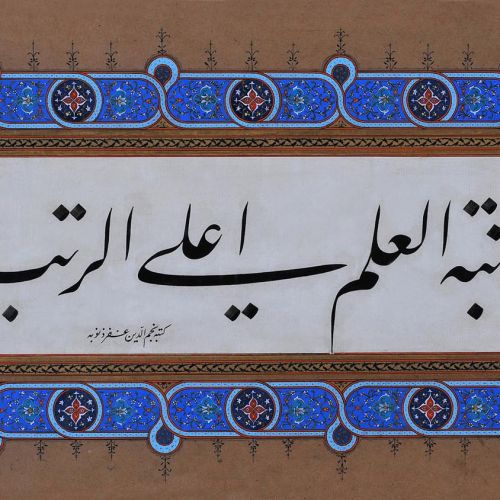 رتبة العلم اعلى الرتب
كتبه نجم الدين غفر ذنوبه